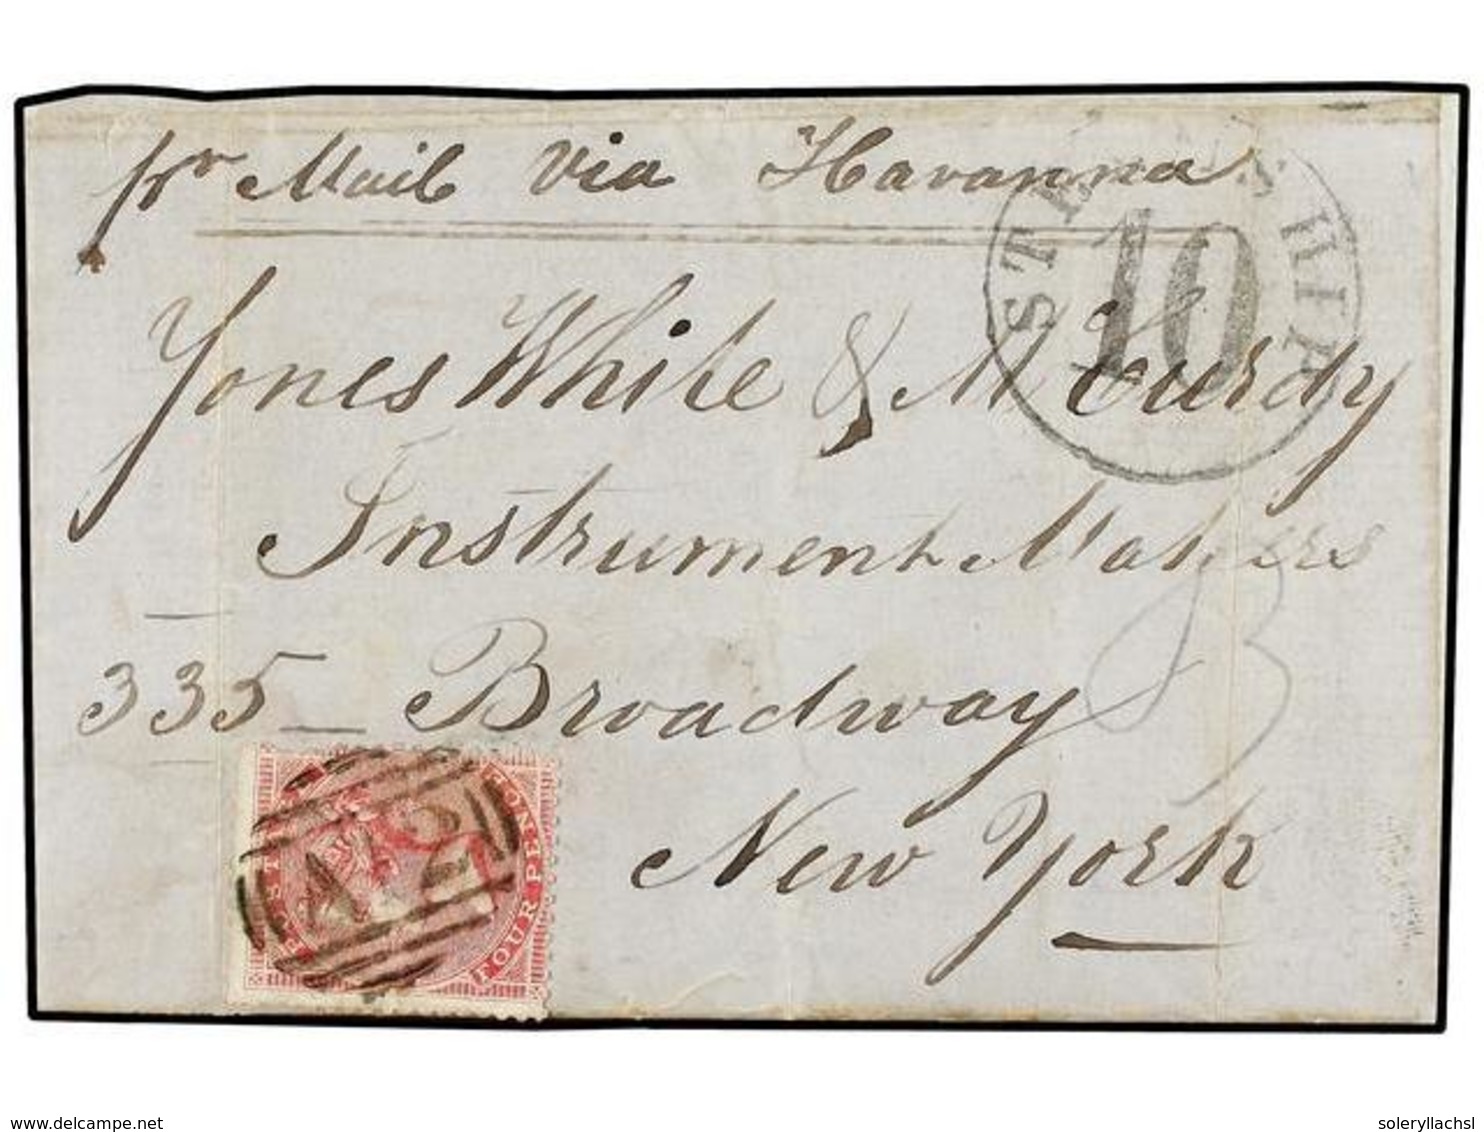 pr Mail via Havanna
STEAMSHIP
10
Jones White & McCurdy
Instrument Makers
335 Broadway
New York
POSTAGE
FOUR PENCE
delcampe.net
soleryllachsl